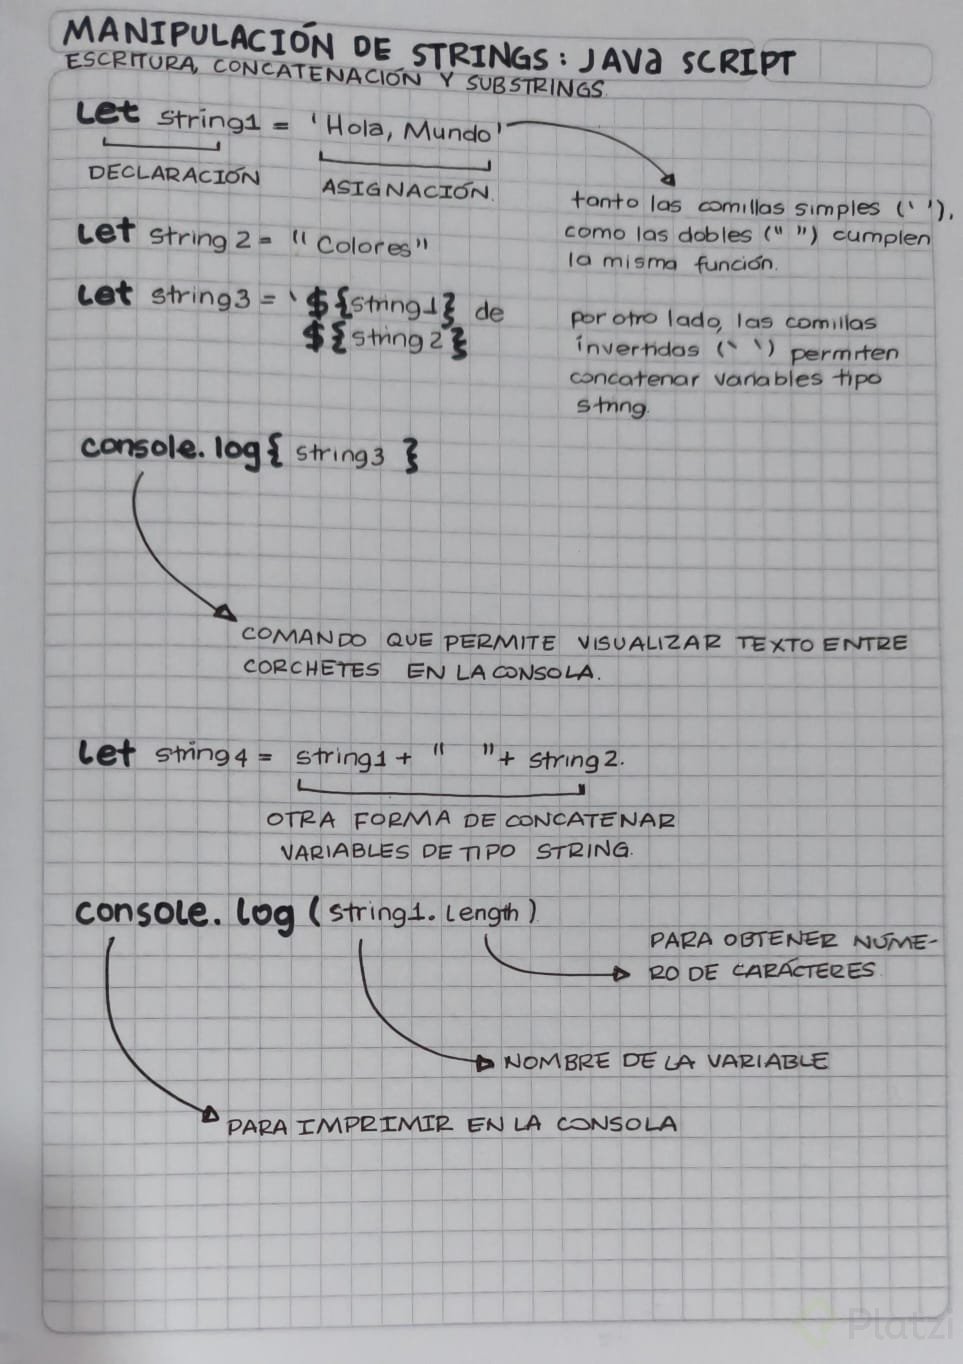 MANIPULACIÓN DE STRINGS: JAVa SCRIPT
ESCRITURA, CONCATENACIÓN Y SUBSTRINGS
Let string1 = 'Hola, Mundo'
DECLARACIÓN
ASIGNACIÓN.
tanto las comillas simples (' '),
como las dobles (" ") cumplen
la misma función.
Let string2 = "Colores"
Let string3 = `${string1} de
${string2}
por otro lado, las comillas
invertidas (` `) permiten
concatenar variables tipo
string.
console.log{ string3 }
COMANDO QUE PERMITE VISUALIZAR TEXTO ENTRE
CORCHETES EN LA CONSOLA.
Let string4 = string1 + " " + string2.
OTRA FORMA DE CONCATENAR
VARIABLES DE TIPO STRING.
console.log (string1.Length)
PARA OBTENER NÚME-
RO DE CARÁCTERES
NOMBRE DE LA VARIABLE
PARA IMPRIMIR EN LA CONSOLA
Platzi